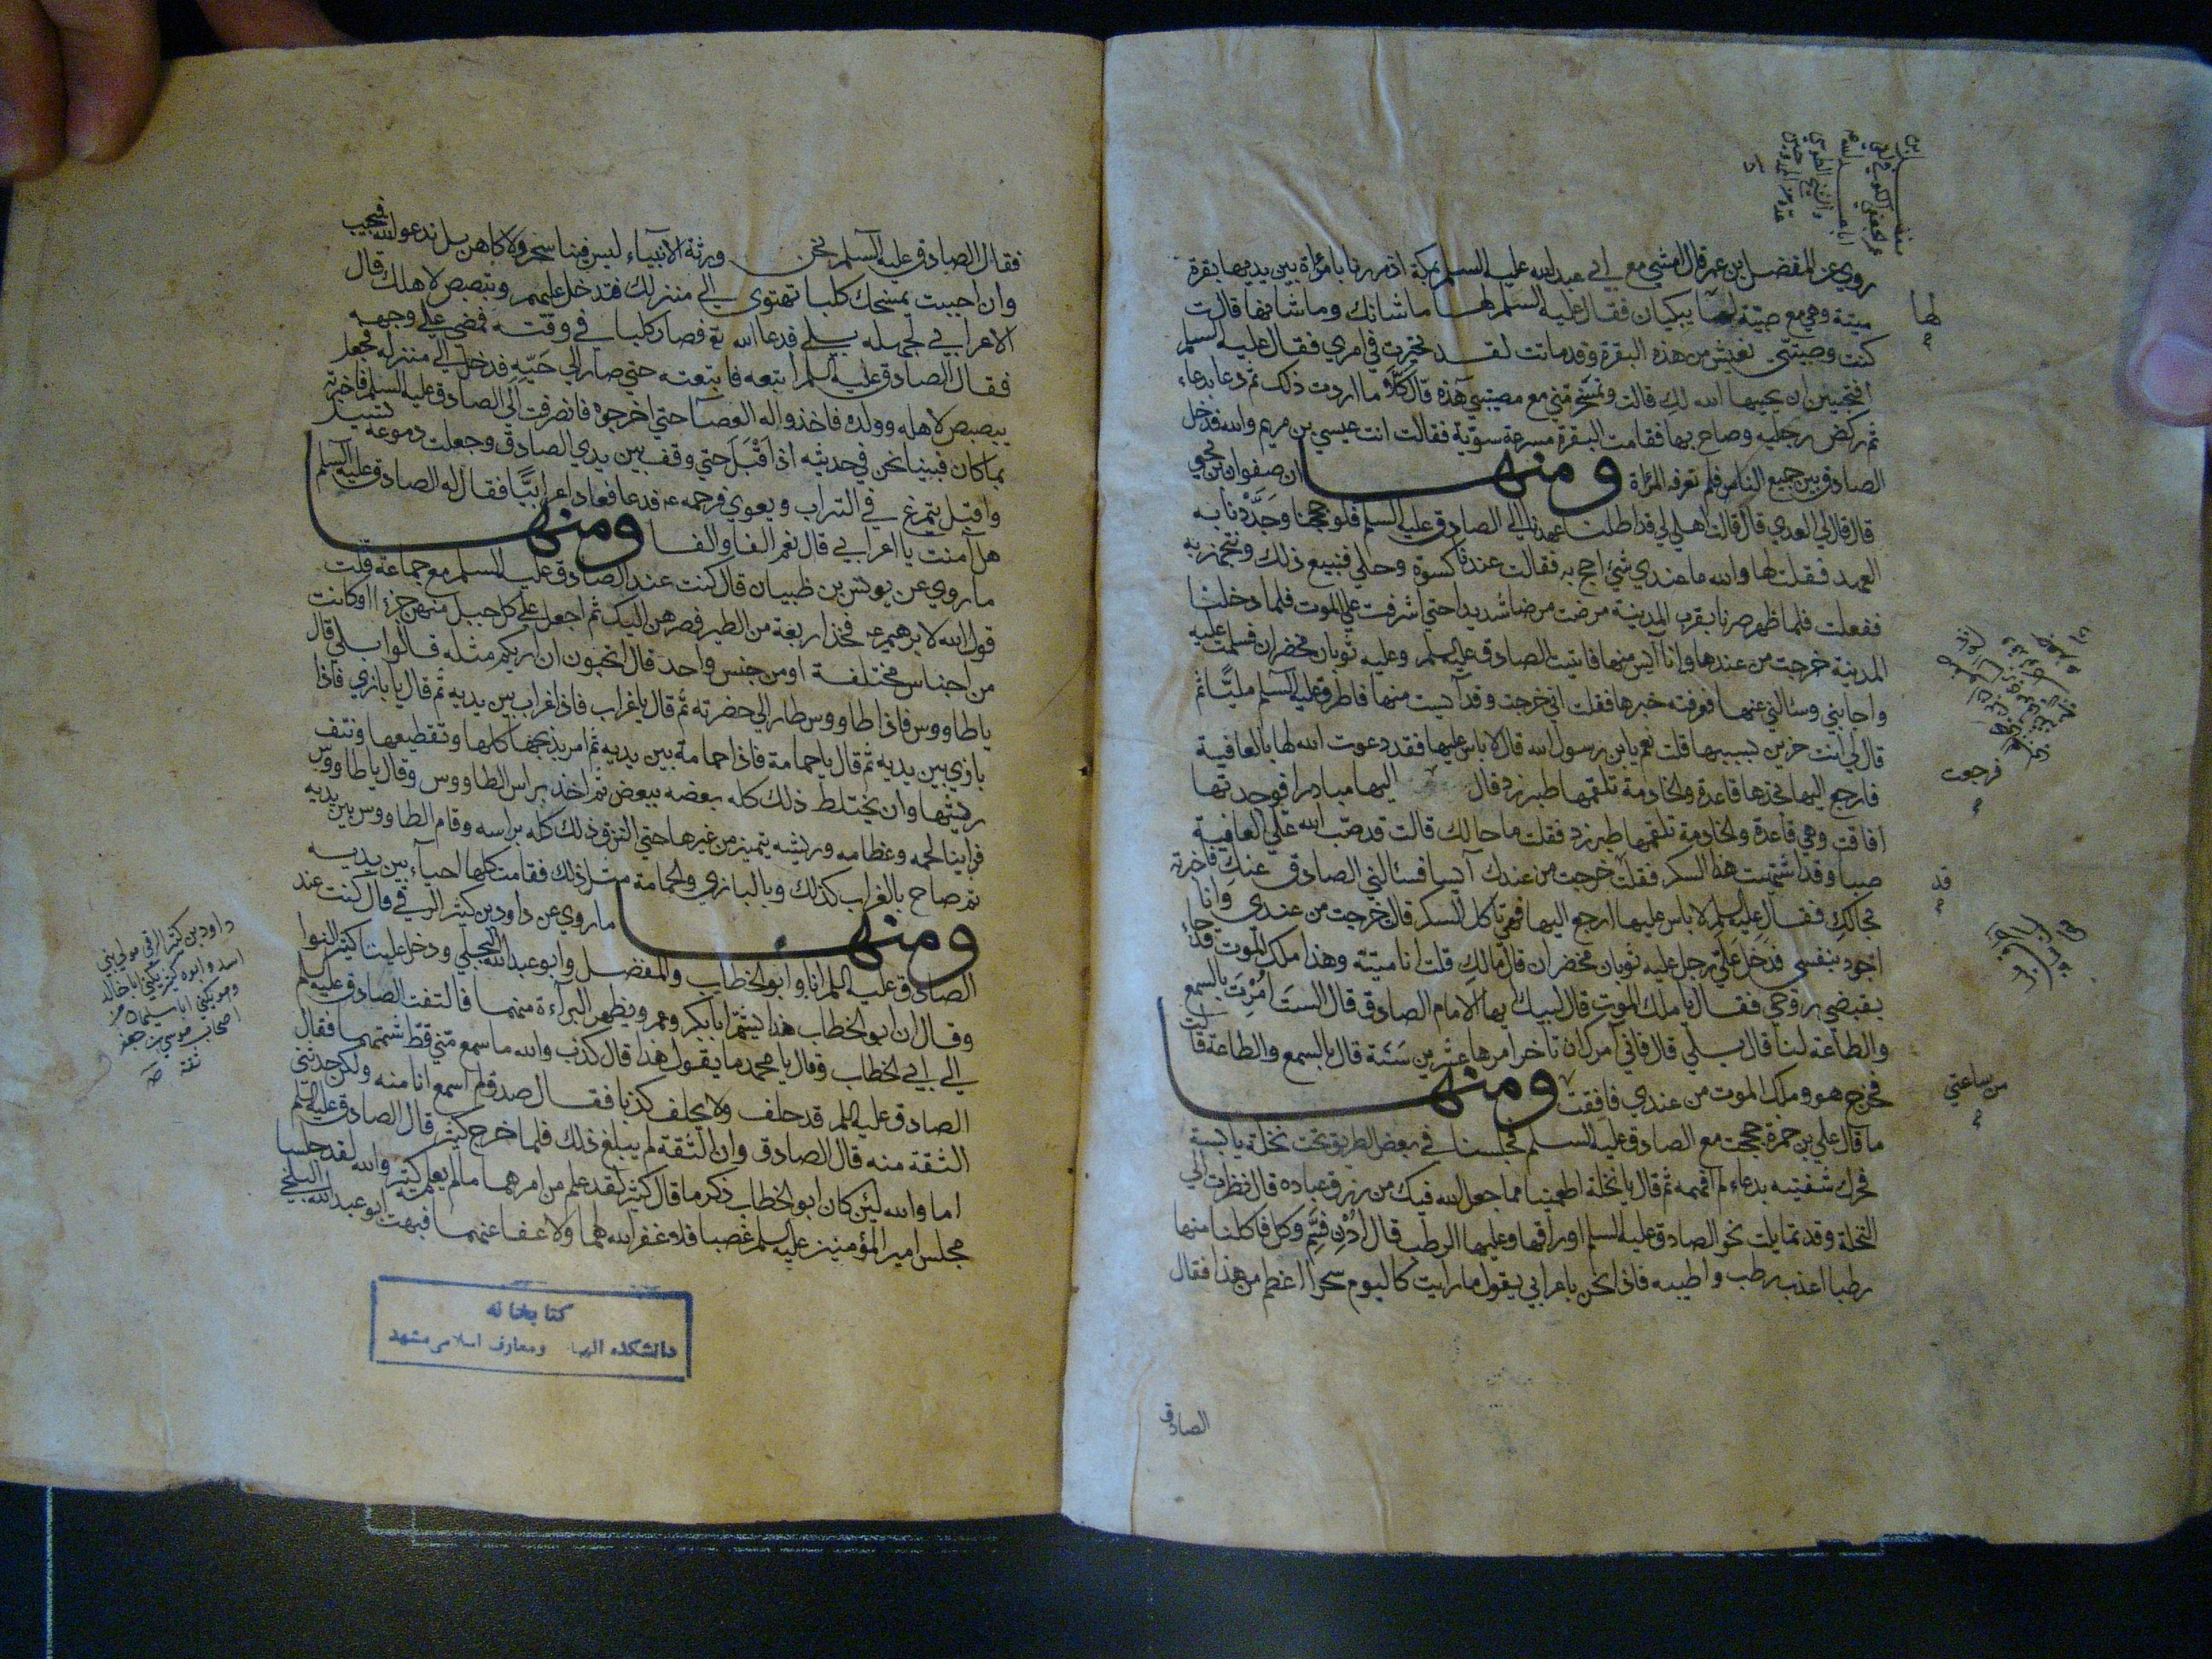 روي عن المفضل بن عمر قال امشي مع ابي عبد الله عليه السلم بمكة اذ مررنا بامراة بين يديها بقرة
ميتة وهي مع صبية لها يبكيان فقال عليه السلم لها ما شانك وما شانها قالت
كنت وصبيتي نعيش من هذه البقرة وقد ماتت لقد تحيرت في امري فقال عليه السلم
افتحبين ان يحييها الله لك قالت وتسخر مني مع مصيبتي هذه قال كلا ما اردت ذلك ثم دعا بدعاء
ثم ركض برجليه وصاح بها فقامت البقرة مسرعة سوية فقالت انت عيسي بن مريم والله فدخل
الصادق بين جميع الناس فلم تعرفه المراة ومنها ان صفوان بن يحيي
قال قال لي العبدي قال قالت اهلي لي قد اطلت عهدنا الي الصادق عليه السلم فلو حججنا وجددنا به
العهد فقلت لها والله ما عندي شيء احج به فقالت عندنا كسوة وحلي فنبيع ذلك ونتجهز به
ففعلت فلما ظهر صرنا بقرب المدينة مرضت مرضا شديدا حتي اشرفت علي الموت فلما دخلنا
المدينة خرجت من عندها وانا آيس منها فاتيت الصادق عليه السلم وعليه ثوبان ممصران فسلمت عليه
واجابني وسالني عنها فعرفته خبرها فقلت اني خرجت وقد آيست منها فاطرق عليه السلم مليا ثم
قال لي انت حزين بسببها قلت نعم يابن رسول الله قال لا باس عليها فقد دعوت الله لها بالعافية
فارجع اليها تجدها قاعدة والخادمة تلقمها طبرزد قال اليها مبادرا فوجدتها
افاقت وهي قاعدة والخادمة تلقمها طبرزد فقلت ما حالك قالت قد صب الله علي العافية
صبا وقد اشتهيت هذا السكر فقلت خرجت من عندك آيسا فسالني الصادق عنك فاخبرته
بحالك فقال عليه السلم لا باس عليها ارجع اليها فهي تاكل السكر قال خرجت من عندي وانا
اجود بنفسي فدخل علي رجل عليه ثوبان ممصران قال مالك قلت انا ميتة وهذا ملك الموت قد جاء
يقبض روحي فقال يا ملك الموت قال لبيك ايها الامام الصادق قال الست امرت بالسمع
والطاعة لنا قال بلي قال فاني آمرك ان تاخر امرها عشرين سنة قال بالسمع والطاعة قالت
فخرج هو وملك الموت من عندي فافقت ومنها
ما قال علي بن حمزة حججت مع الصادق عليه السلم فجلسنا في بعض الطريق تحت نخلة يابسة
فحرك شفتيه بدعاء لم افهمه ثم قال يا نخلة اطعمينا مما جعل الله فيك من رزق عباده قال نظرت الي
النخلة وقد تمايلت نحو الصادق عليه السلم اوراقها وعليها الرطب قال ادن فسم وكل فاكلنا منها
رطبا اعذب رطب واطيبه فاذا نحن باعرابي يقول ما رايت كاليوم سحرا اعظم من هذا فقال
لها
فرجعت
قد
من ساعتي
الصادق
فقال الصادق عليه السلم نحن ورثة الانبياء ليس فينا سحر ولا كاهن بل ندعو الله فيجيب
وان احببت يمسخك كلبا تهتدي الي منزلك فتدخل عليهم وتبصبص لاهلك قال
الاعرابي لجهله بلي فدعا الله تع فصار كلبا في وقته فمضي علي وجهه
فقال الصادق عليه السلم اتبعه فاتبعته حتي صار الي حيه فدخل الي منزله فجعل
يبصبص لاهله وولده فاخذوا له العصا حتي اخرجوه فانصرفت الي الصادق عليه السلم فاخبرته
بما كان فبينا نحن في حديثه اذ اقبل حتي وقف بين يدي الصادق وجعلت دموعه تسيل
واقبل يتمرغ في التراب ويعوي فرحمه ع فدعا فعاد اعرابيا فقال له الصادق عليه السلم
هل آمنت يا اعرابي قال نعم الفا والفا ومنها
ما روي عن يونس بن ظبيان قال كنت عند الصادق عليه السلم مع جماعة قلت
قول الله لابرهيم ع فخذ اربعة من الطير فصرهن اليك ثم اجعل علي كل جبل منهن جزءا اوكانت
من اجناس مختلفة او من جنس واحد قال اتحبون ان اريكم مثله قالوا بلي قال
يا طاووس فاذا طاووس طار الي حضرته ثم قال يا غراب فاذا غراب بين يديه ثم قال يا بازي فاذا
بازي بين يديه ثم قال يا حمامة فاذا حمامة بين يديه ثم امر بذبحها كلها وتقطيعها ونتف
ريشها وان يختلط ذلك كله بعضه ببعض ثم اخذ براس الطاووس وقال يا طاووس
فراينا لحمه وعظامه وريشه يتميز من غيرها حتي التزق ذلك كله براسه وقام الطاووس بين يديه
ثم صاح بالغراب كذلك وبالبازي والحمامة مثل ذلك فقامت كلها احياء بين يديه
ومنها ما روي عن داود بن كثير الرقي قال كنت عند
الصادق عليه السلم انا وابو الخطاب والمفضل وابو عبد الله البجلي ودخل علينا كثير النوا
وقال ان ابو الخطاب هذا يشتم ابا بكر وعمر ويظهر البراءة منهما فالتفت الصادق عليه السلم
الي ابي الخطاب وقال يا محمد ما يقول هذا قال كذب والله ما سمع مني قط شتمهما فقال
الصادق عليه السلم قد حلف ولا يحلف كذبا فقال صدق لم اسمع انا منه ولكن حدثني
الثقة منه قال الصادق وان الثقة لم يبلغ ذلك فلما خرج كثير قال الصادق عليه السلم
اما والله لئن كان ابو الخطاب ذكر ما قال كثير لقد علم من امرهما مالم يعلمه كثير والله لقد جلسا
مجلس امير المؤمنين عليه السلم غصبا فلا غفر الله لهما ولا عفا عنهما فبهت ابو عبد الله البلخي
داود بن كثير الرقي مولي بني
اسد وابوه كثير يكني ابا خالد
وهو يكني ابا سليمان من
اصحاب موسي بن جعفر
ثقة
كتابخانه
دانشكده الهيا ومعارف اسلامى مشهد